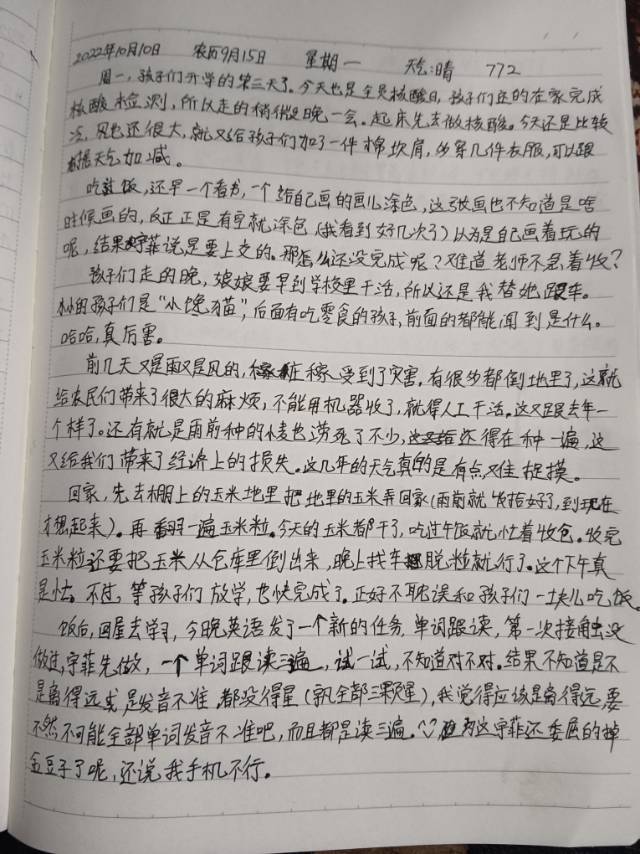 2022年10月10日 农历9月15日 星期一 天气:晴 772
周一,孩子们开学的第三天了。今天也是全员核酸日,孩子们还的在家完成
核酸检测,所以走的稍微晚一会。起床先去做核酸。今天还是比较
冷,风也还很大,就又给孩子们加了一件棉坎肩,多穿几件衣服,可以跟
据天气加减。
吃过饭,还早一个看书,一个给自己画的画儿涂色,这张画也不知道是啥
时候画的,反正正是有空就涂色(我看到好几次了)以为是自己画着玩的
呢,结果宇菲说是要上交的。那怎么还没完成呢?难道老师不急着收?
孩子们走的晚,娘娘要早到学校里干活,所以还是我替她跟车。
小的孩子们是“小馋猫”,后面有吃零食的孩子,前面的都能闻到是什么。
哈哈,真厉害。
前几天又是雨又是风的,庄稼受到了灾害。有很多都倒地里了,这就
给农民们带来了很大的麻烦,不能用机器收了,就得人工干活。这又跟去年一
个样了。还有就是雨前种的麦也涝死了不少,还得在种一遍,这
又给我们带来了经济上的损失。这几年的天气真的是有点难捉摸。
回家,先去棚上的玉米地里把地里的玉米弄回家(雨前就收拾好了,到现在
才想起来)。再翻一遍玉米粒。今天的玉米都干了,吃过午饭就忙着收仓。收完
玉米粒还要把玉米从仓库里倒出来,晚上找车脱粒就行了。这个下午真
是忙。不过,等孩子们放学,也快完成了。正好不耽误和孩子们一块儿吃饭。
饭后,回屋去学习,今晚英语发了一个新的任务,单词跟读,第一次接触没
做过,宇菲先做,一个单词跟读三遍,试一试,不知道对不对。结果不知道是不
是离得远或是发音不准,都没得星(新全部三颗星),我觉得应该是离得远,要
不然不可能全部单词发音不准吧,而且都是读三遍。为这宇菲还委屈的掉
金豆子了呢,还说我手机不行。